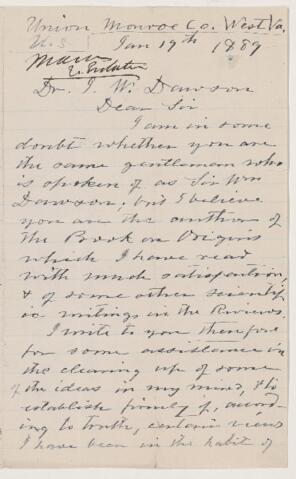 Union Monroe Co. West Va.
U.S. Jan 19th 1889
Dr. J. W. Dawson
Dear Sir
I am in some
doubt whether you are
the same gentleman who
is spoken of as Sir Wm
Dawson, but I believe
you are the author of
the Book on Origins
which I have read
with much satisfaction,
& of some other scientif
ic writings in the Reviews.
I write to you therefore
for some assistance in
the clearing up of some
of the ideas in my mind, & to
establish firmly if, accord
ing to truth, certain views
I have been in the habit of